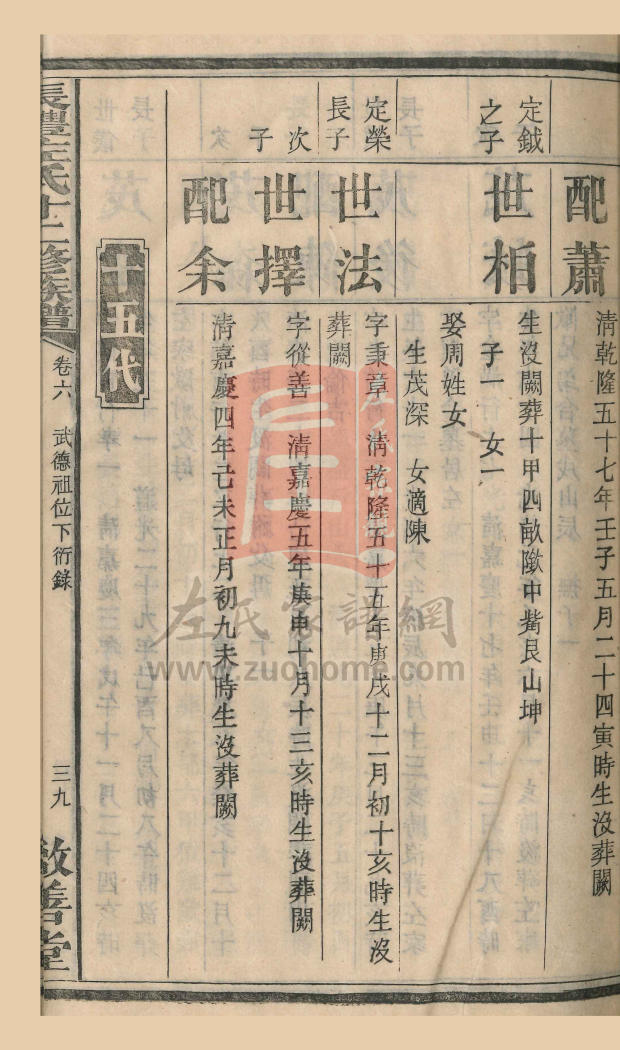 配蕭
清乾隆五十七年壬子五月二十四寅時生沒葬闕
定鉞
之子
世栢
生沒闕葬十甲四畝墩中嘴艮山坤
子一　女一
娶周姓女
生茂深　女適陳
定榮
長子
世法
字秉章　清乾隆五十五年庚戌十二月初十亥時生沒
葬闕
次
子
世擇
字從善　清嘉慶五年庚申十月十三亥時生沒葬闕
配余
清嘉慶四年己未正月初九未時生沒葬闕
十五代
長澧左氏十二修族譜
卷六
武德祖位下衍錄
三九
敘善堂
左氏家譜網
www.zuohome.com